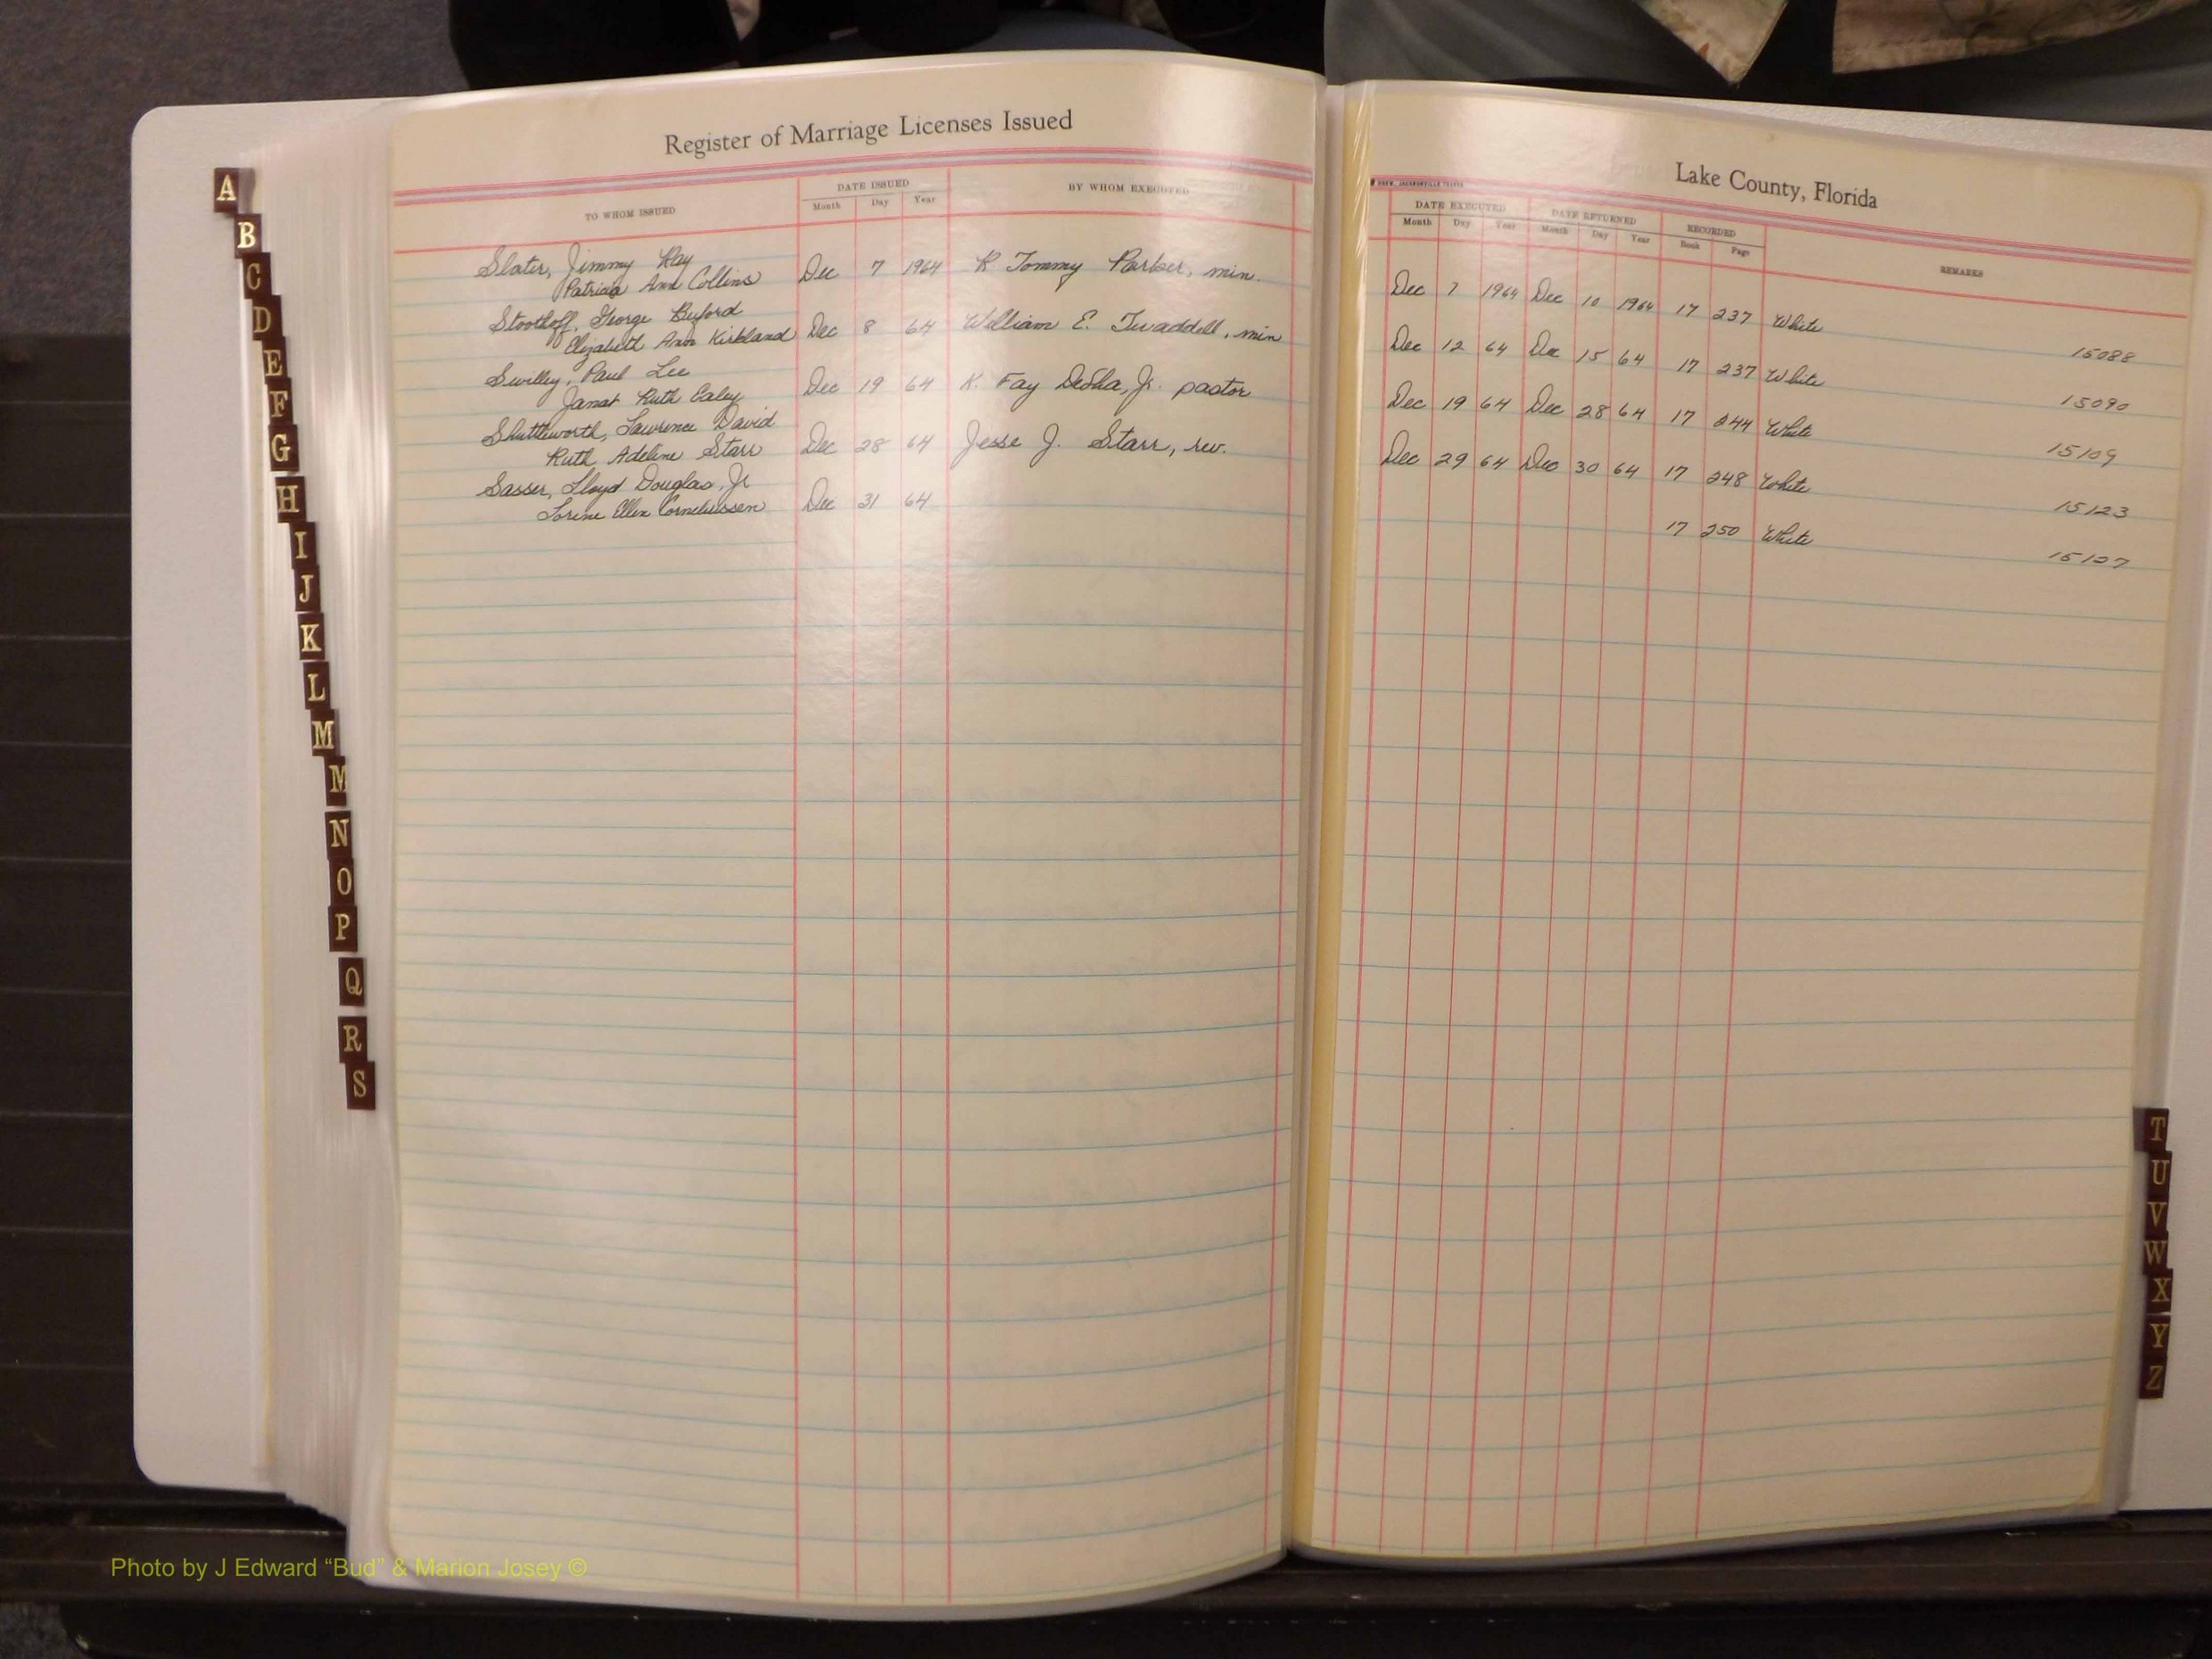 Register of Marriage Licenses Issued
TO WHOM ISSUED
DATE ISSUED
Month Day Year
BY WHOM EXECUTED
Slater, Jimmy Ray
Patricia Ann Collins
Dec 7 1964 R Tommy Parker, min.
Stoothoff, George Buford
Elizabeth Ann Kirkland
Dec 8 64 William E. Twaddell, min
Swilley, Paul Lee
Janet Ruth Ealey
Dec 19 64 K. Fay DeSha, Jr. pastor
Shuttleworth, Lawrence David
Ruth Adeline Starr
Dec 28 64 Jesse J. Starr, rev.
Sasser, Lloyd Douglas, Jr
Lorene Ellen Corneliussen
Dec 31 64
Lake County, Florida
DATE EXECUTED DATE RETURNED RECORDED
Month Day Year Month Day Year Book Page
REMARKS
Dec 7 1964 Dec 10 1964 17 237 White 15088
Dec 12 64 Dec 15 64 17 237 White 15090
Dec 19 64 Dec 28 64 17 244 White 15109
Dec 29 64 Dec 30 64 17 248 White 15123
17 250 White 15127
A
B
C
D
E
F
G
H
I
J
K
L
M
M
N
O
P
Q
R
S
T
U
V
W
X
Y
Z
Photo by J Edward “Bud” & Marion Josey ©